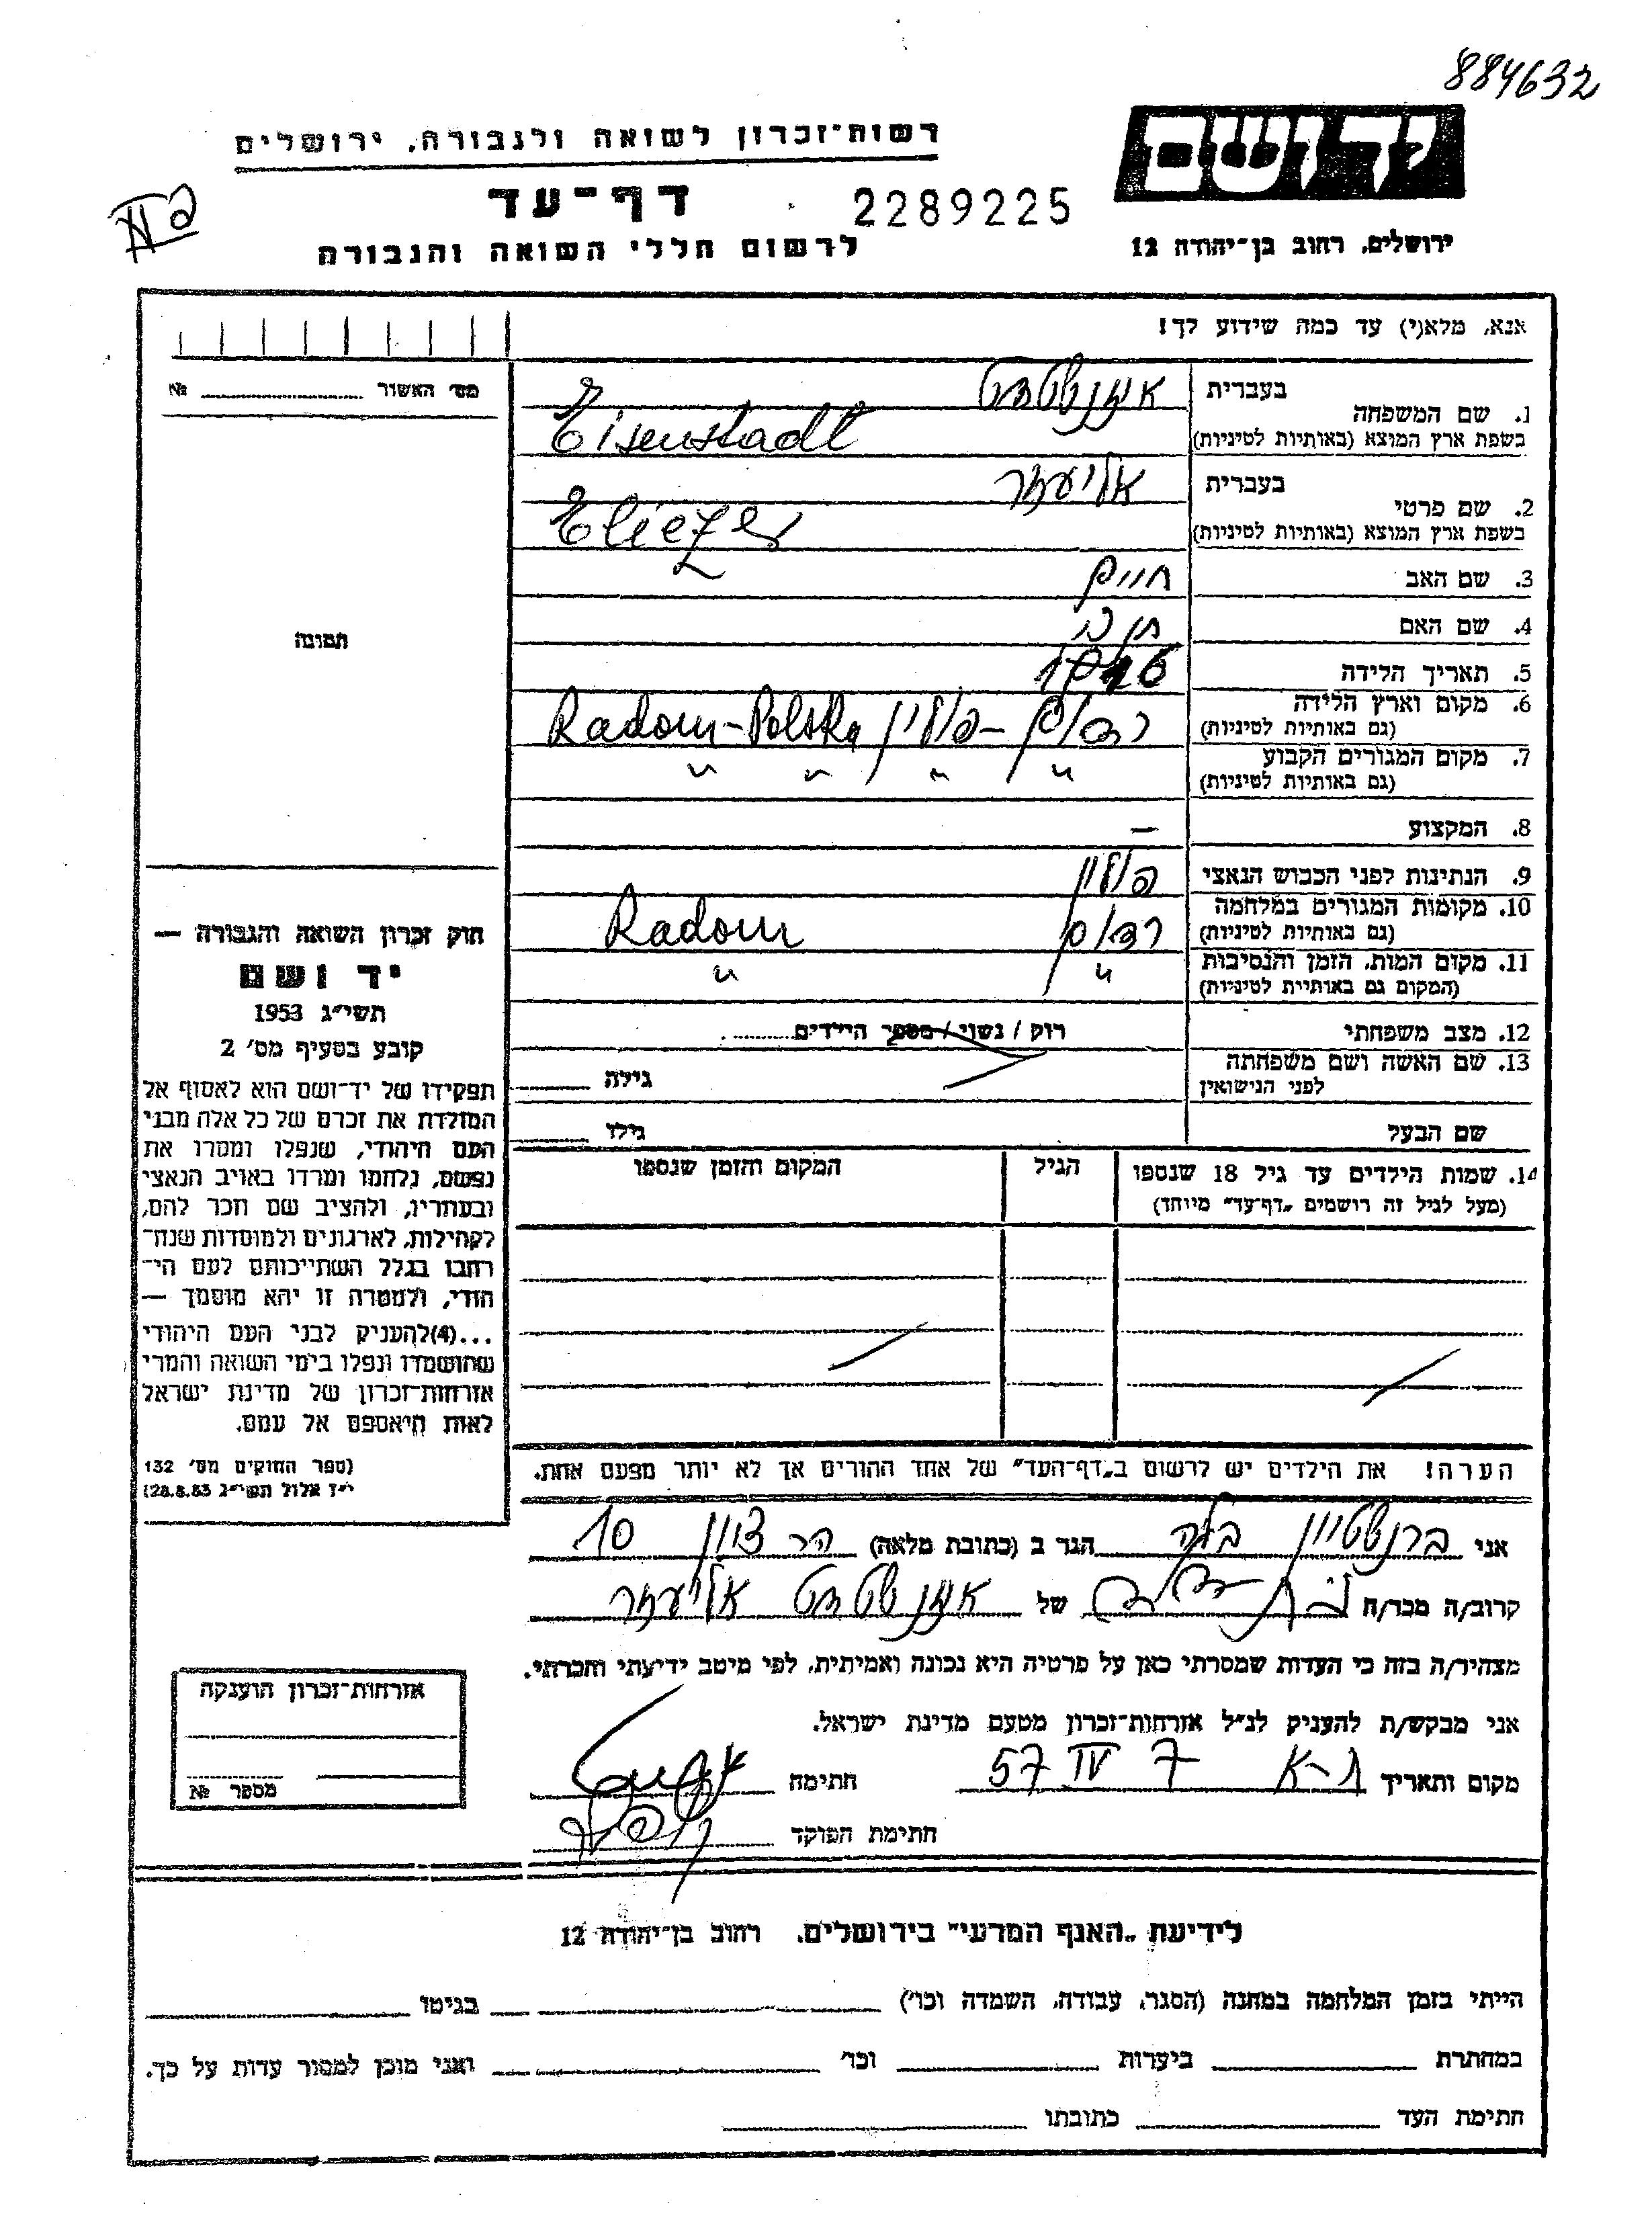 884632
יד ושם
רשות־זכרון לשואה ולגבורה, ירושלים
דף־עד
2289225
לרשום חללי השואה והגבורה
ירושלים, רחוב בן־יהודה 12
אנא, מלא(י) עד כמה שידוע לך!
מס׳ האשור № 
1. שם המשפחה
בעברית אייזנשטדט
בשפת ארץ המוצא (באותיות לטיניות) Eisenstadt
2. שם פרטי
בעברית אליעזר
בשפת ארץ המוצא (באותיות לטיניות) Eliezer
3. שם האב חיים
4. שם האם חנה
5. תאריך הלידה
6. מקום וארץ הלידה
(גם באותיות לטיניות) רדום – פולין Radom-Polska
7. מקום המגורים הקבוע
(גם באותיות לטיניות) " " " "
8. המקצוע —
9. הנתינות לפני הכבוש הנאצי פולין
10. מקומות המגורים במלחמה
(גם באותיות לטיניות) רדום Radom
11. מקום המות, הזמן והנסיבות
(המקום גם באותיות לטיניות) " "
12. מצב משפחתי רוק / נשוי / מספר הילדים
13. שם האשה ושם משפחתה
לפני הנישואין גילה
שם הבעל גילו
14. שמות הילדים עד גיל 18 שנספו
(מעל לגיל זה רושמים „דף־עד" מיוחד)
הגיל
המקום והזמן שנספו
תמונה
חוק זכרון השואה והגבורה —
יד ושם
תשי״ג 1953
קובע בסעיף מס׳ 2
תפקידו של יד־ושם הוא לאסוף אל
המולדת את זכרם של כל אלה מבני
העם היהודי, שנפלו ומסרו את
נפשם, נלחמו ומרדו באויב הנאצי
ובעוזריו, ולהציב שם וזכר להם,
לקהילות, לארגונים ולמוסדות שנח־
רבו בגלל השתייכותם לעם הי־
הודי, ולמטרה זו יהא מוסמך —
...(4)להעניק לבני העם היהודי
שהושמדו ונפלו בימי השואה והמרי
אזרחות־זכרון של מדינת ישראל
לאות היאספם אל עמם.
(ספר החוקים מס׳ 132
י״ז אלול תשי״ג 28.8.53)
הערה! את הילדים יש לרשום ב„דף־העד" של אחד ההורים אך לא יותר מפעם אחת.
אני ברנשטיין בלה הגר ב (כתובת מלאה) הר ציון 10
קרוב/ה מכר/ה של אייזנשטדט אליעזר
מצהיר/ה בזה כי העדות שמסרתי כאן על פרטיה היא נכונה ואמיתית, לפי מיטב ידיעתי והכרתי.
אני מבקש/ת להעניק לנ״ל אזרחות־זכרון מטעם מדינת ישראל.
מקום ותאריך ת–א 7 IV 57 חתימה
חתימת הפוקד
אזרחות־זכרון הוענקה
מספר №
לידיעת „האגף המדעי" בירושלים, רחוב בן־יהודה 12
הייתי בזמן המלחמה במחנה (הסגר, עבודה, השמדה וכו׳) בגיטו
במחתרת ביערות וכו׳ ואני מוכן למסור עדות על כך.
חתימת העד כתובתו